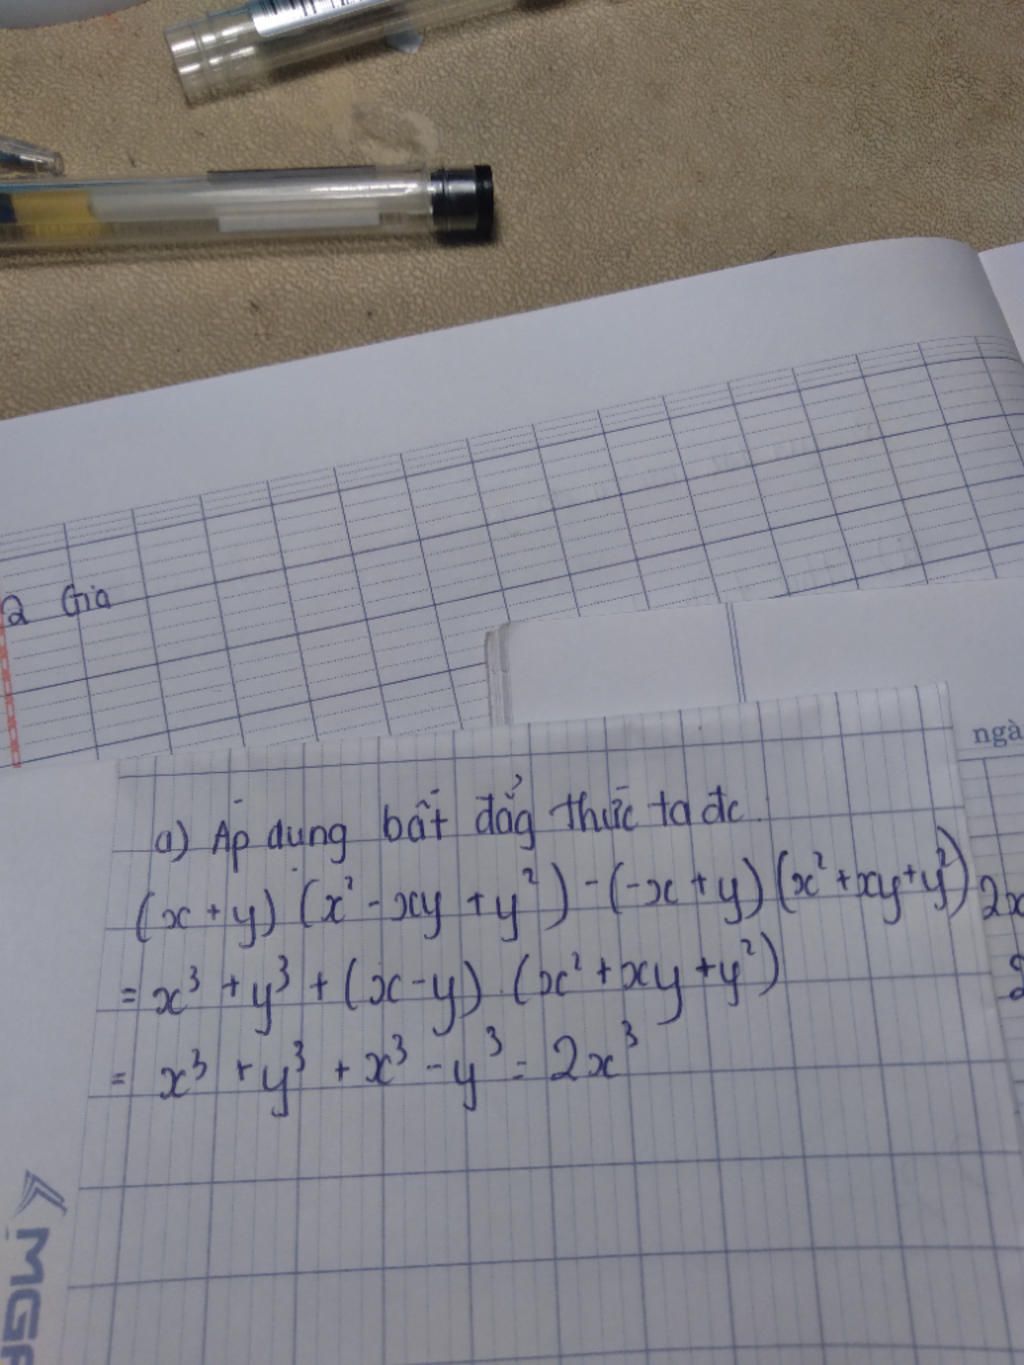 2 Gia
ngà
a) Áp dụng bất đẳg thức ta đc.
(x + y) (x² - xy + y²) - (-x + y) (x² + xy + y²)
2x
= x³ + y³ + (x - y) . (x² + xy + y²)
= x³ + y³ + x³ - y³ = 2x³